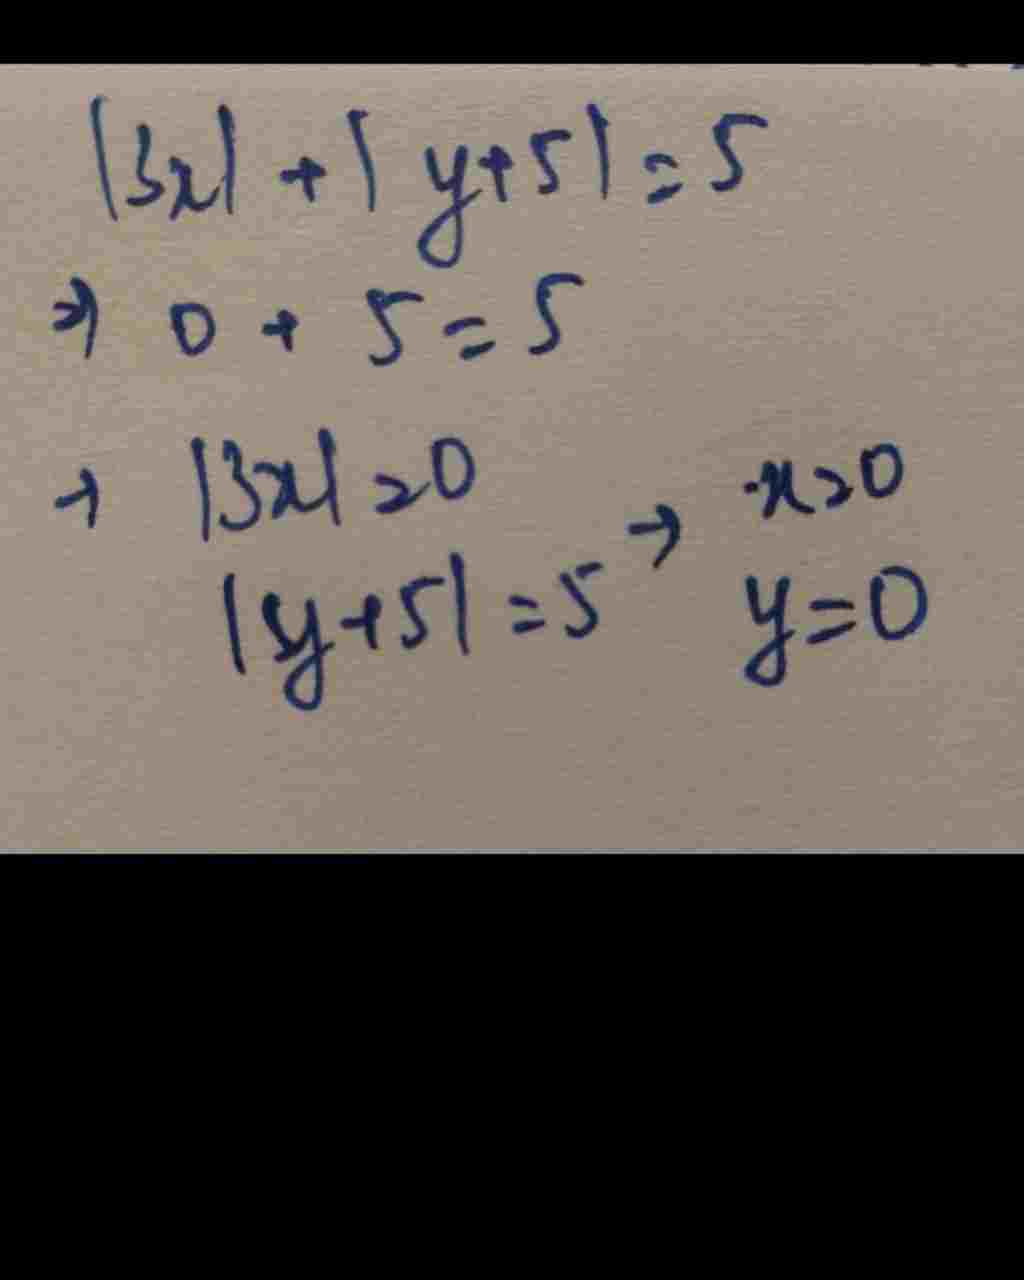 |3x| + | y+5| = 5
⇒ 0 + 5 = 5
→ |3x| = 0
|y+5| = 5 → x=0
y=0